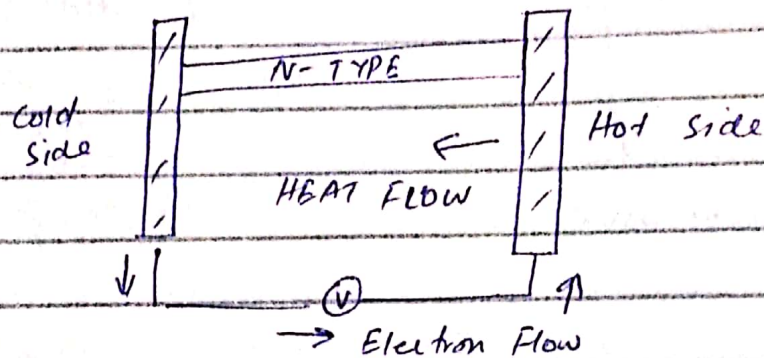 N-TYPE
Cold side
Hot side
HEAT FLOW
V
Electron Flow